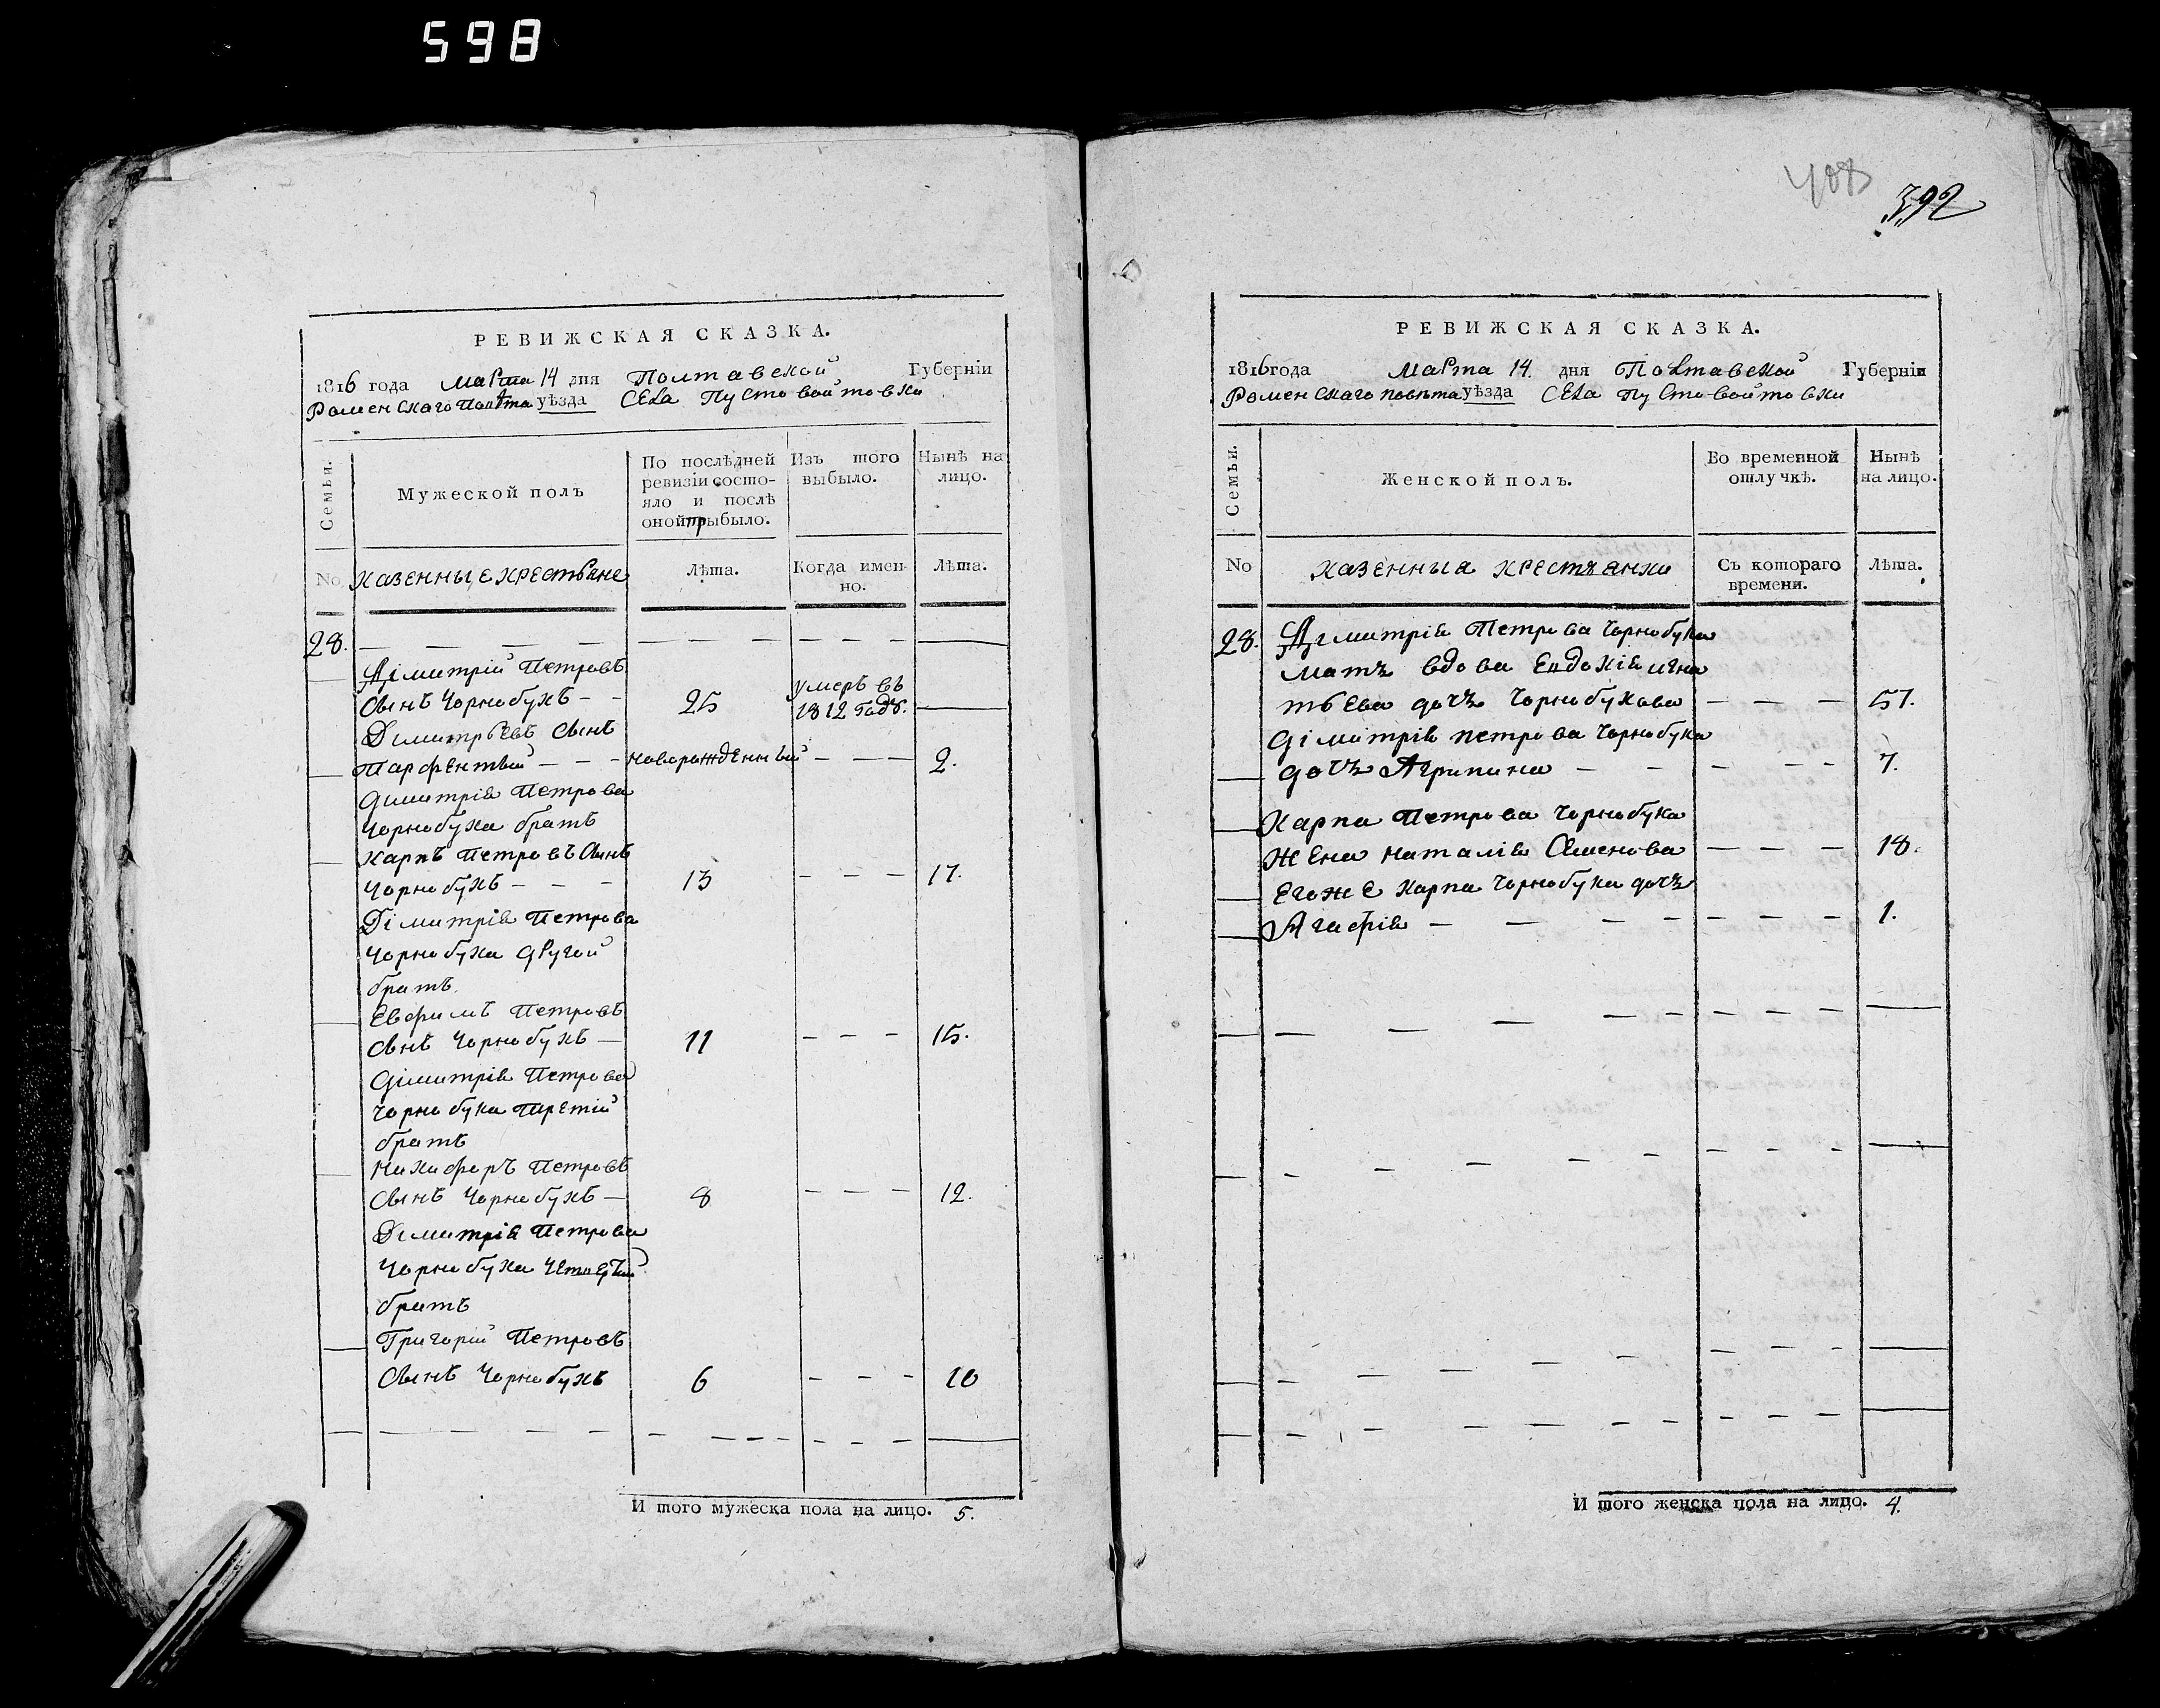 598
РЕВИЖСКАЯ СКАЗКА.
1816 года Марта 14 дня Полтавской Губерніи
Роменскаго Повѣта уѣзда Села Пустовойтовки
Семьи.
Мужеской полъ
По послѣдней ревизіи состо-
яло и послѣ
оной прыбыло.
Изъ того
выбыло.
Нынѣ на
лицо.
No
Казенные крестьяне
Лѣта.
Когда имен-
но.
Лѣта.
28.
Дімитрій Петровъ
Сынъ Чорнобукъ 25 умеръ въ 1812 годѣ.
Димитрьевъ Сынъ
Парфентий новорожденный 2.
Димитрія Петрова
Чорнобука братъ
Карпъ Петровъ Сынъ
Чорнобукъ 13 17.
Дімитрія Петрова
Чорнобука другой
братъ
Евфимъ Петровъ
Сынъ Чорнобукъ 11 15.
Дімитрія Петрова
Чорнобука третій
братъ
Никифоръ Петровъ
Сынъ Чорнобукъ 8 12.
Димитрія Петрова
Чорнобука
братъ
Григорій Петровъ
Сынъ Чорнобукъ 6 10
И того мужеска пола на лицо. 5.
408
392
РЕВИЖСКАЯ СКАЗКА.
1816 года Марта 14. дня Полтавской Губерніи
Роменскаго повѣта уѣзда Села Пустовойтовки
Семьи.
Женской полъ.
Во временной
отлучкѣ.
Нынѣ
на лицо.
No
Казенныя крестьянки
Съ котораго
времени.
Лѣта.
28. Димитрія Петрова Чорнобука
мать вдова Евдокія Игна
тьева дочь Чорнобукова 57.
Дімитрія петрова Чорнобука
дочь Агрипина 7.
Карпа Петрова Чорнобука
жена Наталія Семенова 18.
Егоже Карпа Чорнобука дочь
Агафія 1.
И того женска пола на лицо. 4.